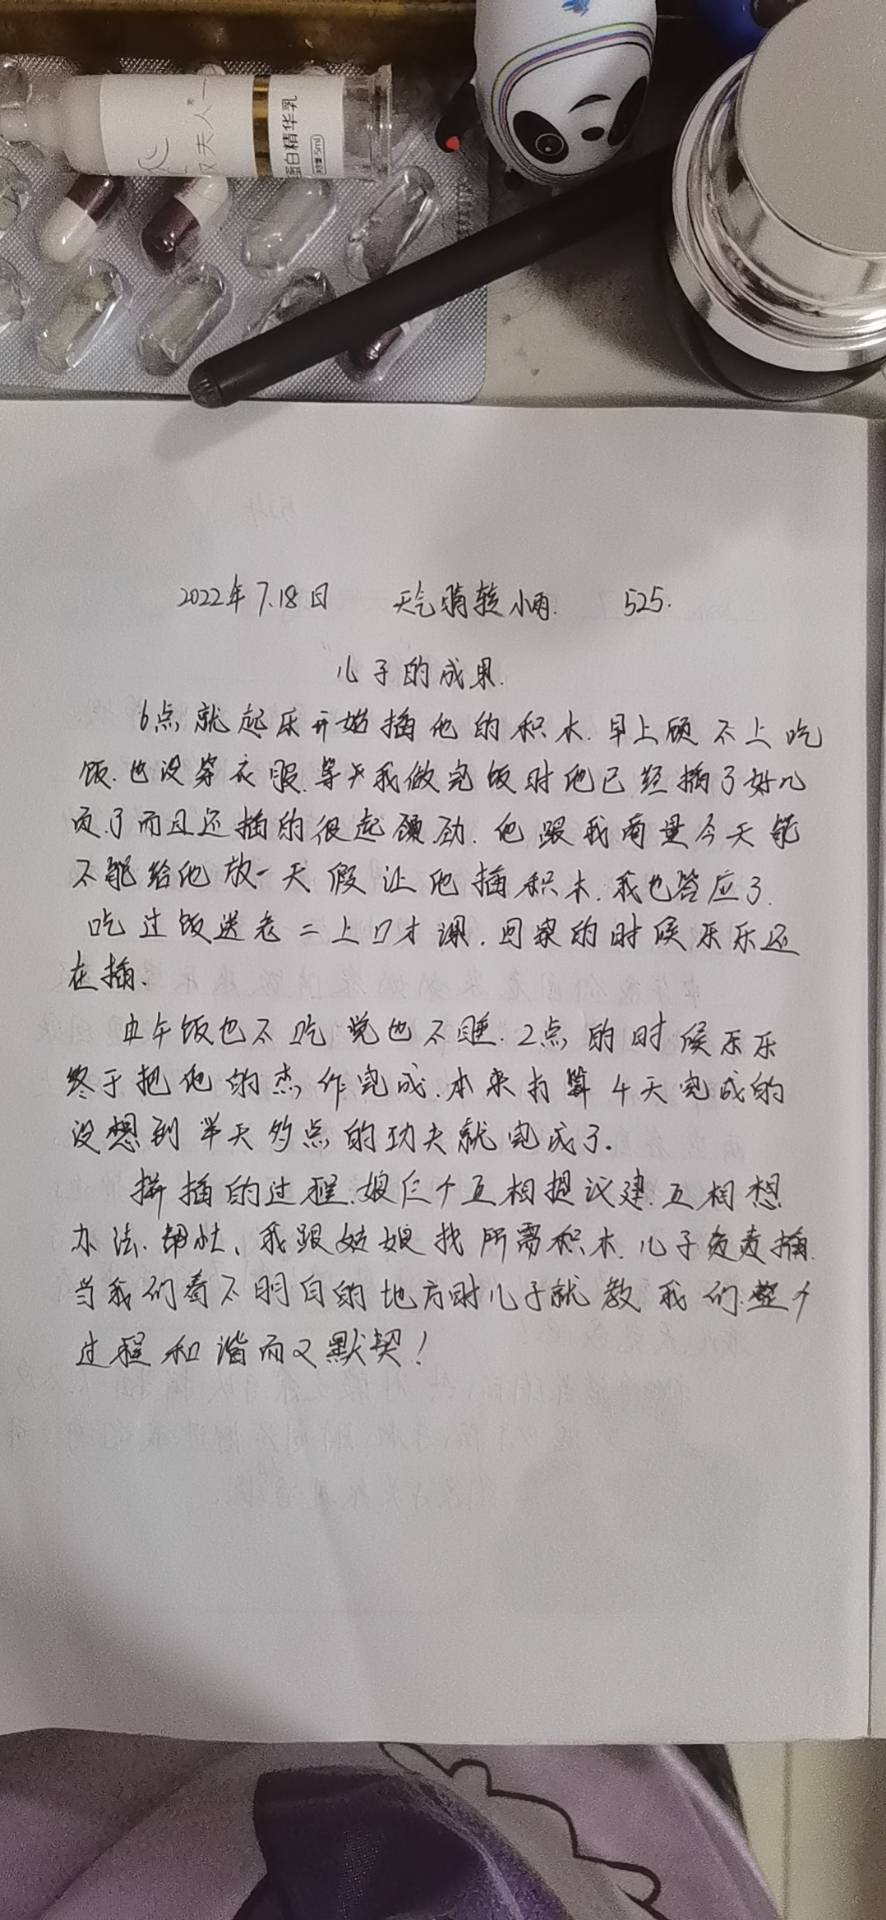 蛋白精华乳
5ml
夫人
2022年7.18日 天气晴转小雨. 525.
儿子的成果.
6点就起床开始插他的积木.早上顾不上吃
饭.也没穿衣服.等我做完饭时他已经插了好几
页了而且还插的很起颈劲.他跟我商量今天能
不能给他放一天假让他插积木.我也答应了.
吃过饭送老二上口才课.回家的时候乐乐还
在插.
中午饭也不吃觉也不睡.2点的时候乐乐
终于把他的杰作完成.本来打算4天完成的
没想到半天多点的功夫就完成了.
拼插的过程.娘仨个互相提议建.互相想
办法.我跟姑娘找所需积木.儿子负责插.
当我们看不明白的地方时儿子就教我们.整个
过程和谐而又默契!